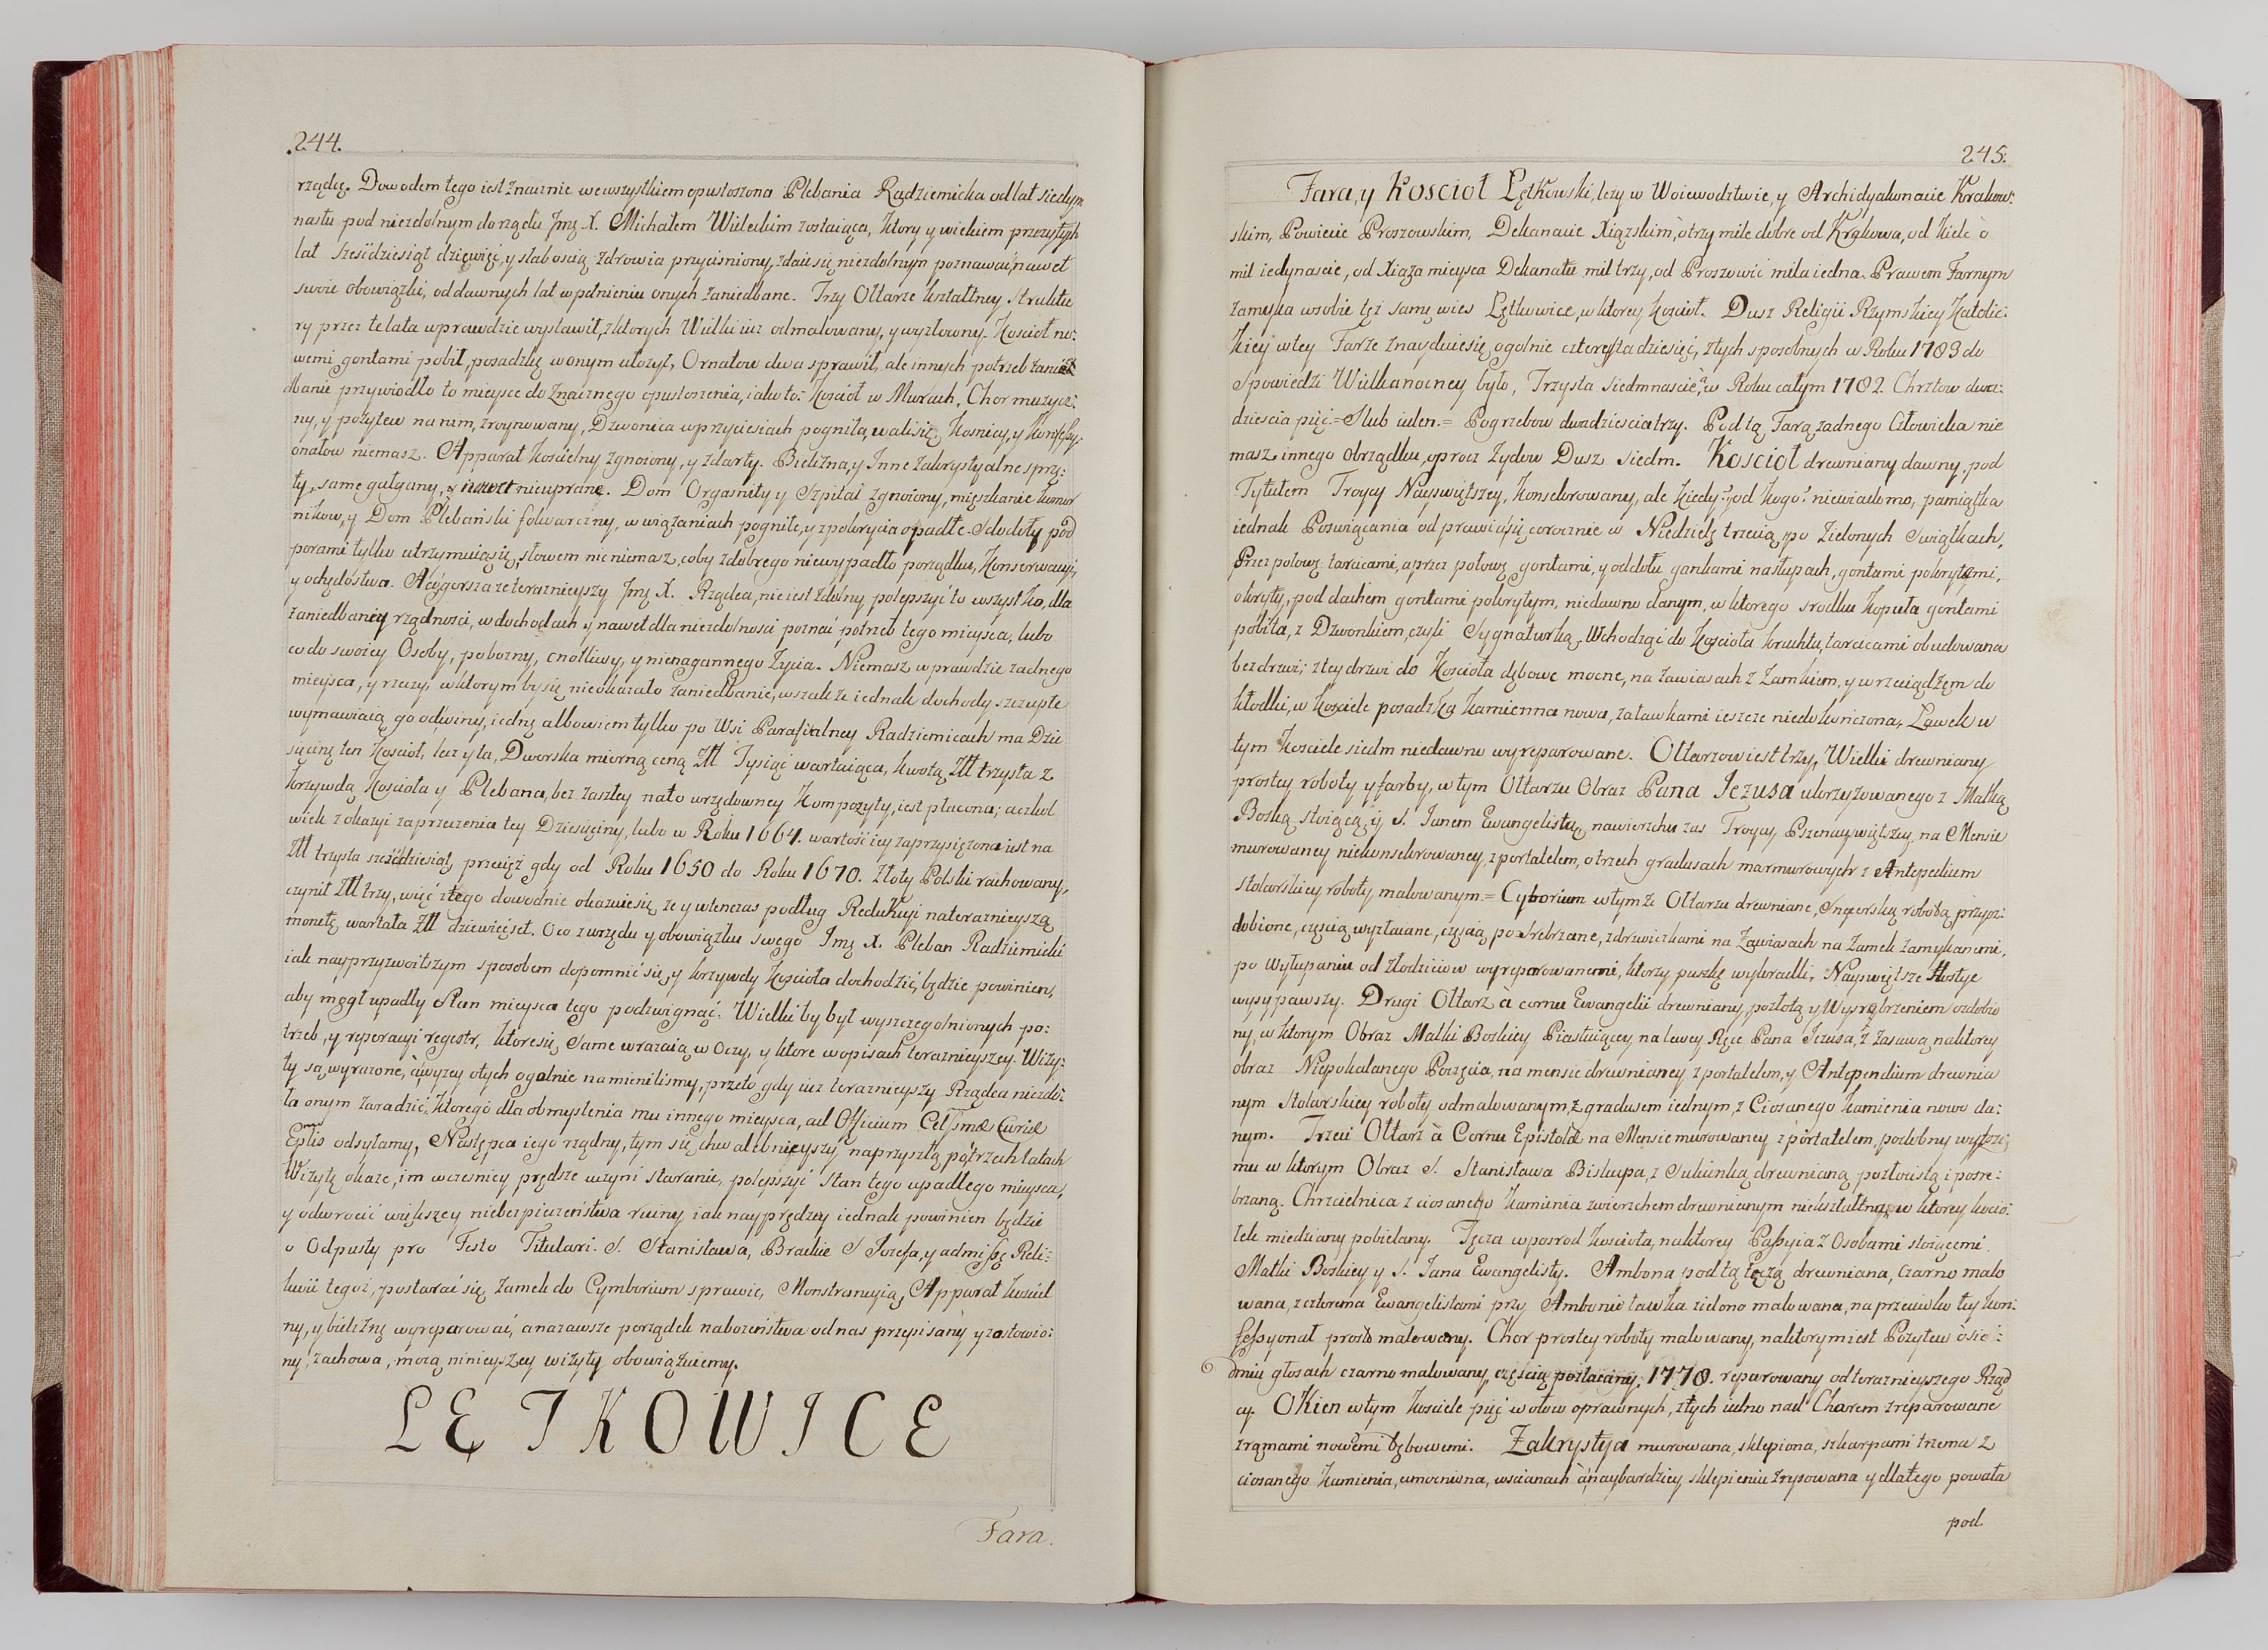 244.
rządcę. Dowodem tego iest znacznie we wszystkiem opustoszona Plebania Radziemicka od lat siedym
nastu pod niezdolnym do rządu Jmę X. Michałem Wileckim zostaiąca, ktory y wiekiem przeżytych
lat sześćdziesiąt dziewięć, y słabością zdrowia przyciśniony, zdaie się niezdolnym poznawać nawet
swoie obowiązki, od dawnych lat w pełnieniu onych zaniedbane. Trzy Ołtarze kształtney struktu
ry przez te lata wprawdzie wystawił, z ktorych Wielki iuż odmalowany, y wyzłocony. Kościoł no:
wemi gontami pobił, posadzkę w onym ułożył, Ornatow dwa sprawił, ale innych potrzeb zanie
dbanie przywiodło to mieysce do znacznego opustoszenia, iako to: Kościoł w Murach, Chor muzycz:
ny, y pozytew na nim, zroynowany, Dzwonica w przyciesiach pogniła, wali się, Kosnicy, y Konfessy:
onałow niemasz. Apparat Kościelny zgnoiony, y zdarty. Bielizna, y Inne zakrystyalne sprzę:
ty, same gałgany, y nawet nieuprane. Dom Organisty y Szpital zgnoiony, mięszkanie Komor
nikow, y Dom Plebański folwarczny, w wiązaniach pogniłe, y z pokrycia opadłe. Stodoły pod
porami tylko utrzymuią się, słowem nic niemasz, coby z dobrego niewypadło porządku, Konserwacyi,
y ochędostwa. A co gorsza że teraznieyszy Jmę X. Rządca, nie iest zdolny polepszyć to wszystko, dla
zaniedbaney rządności, w dochodach y nawet dla niezdolności poznać potrzeb tego mieysca, lubo
co do swoiey Osoby, pobożny, cnotliwy, y nienagannego życia. Niemasz wprawdzie żadnego
mieysca, y rzeczy, w ktorym by się nieokazało zaniedbanie, wszakże iednak dochody szczupłe
wymawiaią go od winy, iedną albowiem tylko po Wsi Parafialney Radziemicach ma Dzie
sięcinę ten Kościoł, lecz y ta, Dworska mierną ceną Złł Tysiąc wartaiąca, kwotą Złł trzysta z
krzywdą Kościoła y Plebana, bez zaszłey na to urzędowney Kompozyty, iest płacona; aczkol
wiek z okazyi zaprzeczenia tey Dziesięciny, lubo w Roku 1664. wartość iey zaprzysiężona iest na
Złł trzysta sześćdziesiąt, przecięż gdy od Roku 1650 do Roku 1670. Złoty Polski rachowany,
czynił Złł trzy, więc z tego dowodnie okazuie się, że y wtenczas podług Redukcyi na teraznieyszą
monetę wartała Złł dziewięćset. Oco z urzędu y obowiązku swego Jmę X. Pleban Radziemicki
iak nayprzyzwoitszym sposobem dopomnieć się, y krzywdy Kościoła dochodzić, będzie powinien,
aby mogł upadły Stan mieysca tego podzwignąć. Wielki by był wyszczegolnionych po:
trzeb, y reperacyi regestr, ktore się same wrażaią w Oczy, y ktore w opisach teraznieyszey Wizy:
ty są wyrażone, à wyżey o tych ogolnie namieniliśmy, przeto gdy iuż teraznieyszy Rządca niezdo:
ła onym zaradzić, ktorego dla obmyślenia mu innego mieysca, ad Officium Celsmæ Curiæ
Eplis odsyłamy, Następca iego rządny, tym się chwalebnieyszy, na przyszłą po trzech latach
Wizytę okaże, im wcześniey prędsze uczyni staranie, polepszyć Stan tego upadłego mieysca,
y odwrocić większey niebezpieczeństwa ruiny, iak nayprędzey iednak powinien będzie
o Odpusty pro Festo Titulari. S. Stanisława, Brackie S Jozefa, y admissę Reli:
kwii tegoż, postarać się, Zamek do Cymborium sprawić, Monstrancyią, Apparat kościel
ny, y bieliznę wyreperować, a na zawsze porządek nabożeństwa od nas przepisany y zostawio:
ny, zachowa, mocą ninieyszey wizyty obowiązuiemy.
ŁĘTKOWICE
Fara.
245.
Fara, y Kościoł Łętkowski, leży w Woiewodztwie, y Archidyakonacie Krakow:
skim, Powiecie Proszowskim, Dekanacie Xiązskim, o trzy mile dobre od Krakowa, od Kielc o
mil iedynascie, od Xiąża mieysca Dekanatu mil trzy, od Proszowic mila iedna. Prawem Farnym
zamyka w sobie też samę wies Łętkowice, w ktorey Kościoł. Dusz Religii Rzymskiey Katolic:
kiey w tey Farze znayduie się ogolnie czterysta dziesięć, z tych sposobnych w Roku 1783 do
Spowiedzi Wielkanocney było, Trzysta siedmnaście, à w Roku całym 1782. Chrztow dwa:
dzieścia pięć.= Slub ieden.= Pogrzebow dwadzieścia trzy. Pod tą Farą żadnego Człowieka nie
masz innego Obrządku, oprocz Żydow Dusz siedm. Kościoł drewniany dawny, pod
Tytułem Troycy Nayswiętszey, Konsekrowany, ale kiedy? y od kogo? niewiadomo, pamiątka
iednak Poświącania odprawia się corocznie w Niedzielę trzecią po Zielonych Swiątkach,
Przez połowę tarcicami, a przez połowę gontami, y od dołu gankami na słupach, gontami pokrytemi,
okryty, pod dachem gontami pokrytym, niedawno danym, w ktorego srodku Kopuła gontami
pobita, z Dzwonkiem, czyli Sygnaturką. Wchodząc do Kościoła kruchta, tarcicami obudowana
bez drzwi; z tey drzwi do Kościoła dębowe mocne, na zawiasach z Zamkiem, y wrzeciądzem do
kłodki, w Kościele posadzka Kamienna nowa, za ławkami ieszcze niedokończona, Ławek w
tym Kościele siedm niedawno wyreparowane. Ołtarzow iest trzy, Wielki drewniany
prostey roboty y farby, w tym Ołtarzu Obraz Pana Jezusa ukrzyżowanego z Matką
Boską stoiącą, y S. Janem Ewangelistą, na wierzchu zas Troycy Przenayswiętszey, na Mensie
murowaney niekonsekrowaney, z portatelem, o trzech gradusach marmurowych z Antepedium
stolarskiey roboty, malowanym.= Cyborium w tymże Ołtarzu drewniane, Snycerską robotą przyoz:
dobione, częścią wyzłacane, częścią posrebrzane, z drzwiczkami na Zawiasach na Zamek zamykanemi,
po wyłupaniu od złodzieiow wyreperowanemi, ktorzy puszkę wykradli, Nayswiętsze Hostye
wysypawszy. Drugi Ołtarz à cornu Ewangelii drewniany, pozłotą y Wysrebrzeniem ozdobio
ny, w ktorym Obraz Matki Boskiey Piastuiącey na lewey Ręce Pana Jezusa, z Zasuwą na ktorey
obraz Niepokalanego Poczęcia, na mensie drewnianey z portatelem, y Antependium drewnia
nym Stolarskiey roboty odmalowanym, z gradusem iednym, z Ciosanego Kamienia nowo da:
nym. Trzeci Ołtarz à Cornu Epistolæ na Mensie murowaney z portatelem, podobny wyższe:
mu w ktorym Obraz S. Stanisława Biskupa, z Sukienką drewnianą pozłocistą i posre:
brzaną. Chrzcielnica z ciosanego Kamienia z wierzchem drewnianym niekształtnym w ktorey kocio:
łek miedziany pobielany. Tęcza w posrod Kościoła, na ktorey Passyia z Osobami stoiącemi
Matki Boskiey y S. Jana Ewangelisty. Ambona pod tą tęczą drewniana, czarno malo
wana, z czterema Ewangelistami przy Ambonie ławka zielono malowana, na przeciwko tey kon:
fessyonał prosto malowany. Chor prostey roboty malowany, na ktorym iest Pozytew o sie:
dmiu głosach czarno malowany, częścią pozłacany, 1778. reparowany od teraznieyszego Rząd
cy. Okien w tym Kościele pięć w ołow oprawnych, z tych iedno nad Chorem zreparowane
z ramami nowemi dębowemi. Zakrystya murowana, sklepiona, szkarpami trzema z
ciosanego Kamienia, umocniona, w scianach à naybardziey sklepieniu zrysowana y dlatego powała
pod